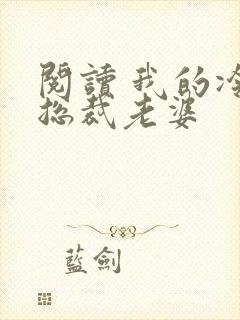 閱讀我的冷
總裁老婆
藍劍